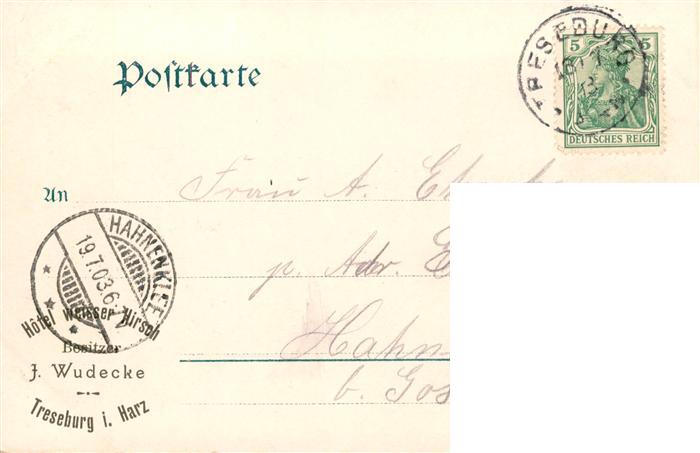 Postkarte
TRESEBURG
5 5
DEUTSCHES REICH
An
Frau A.
p. Adr.
Hahn
b. Gos
HAHNENKLEE
19.7.03.6-7
Hôtel weisser Hirsch
Besitzer
J. Wudecke
Treseburg i. Harz